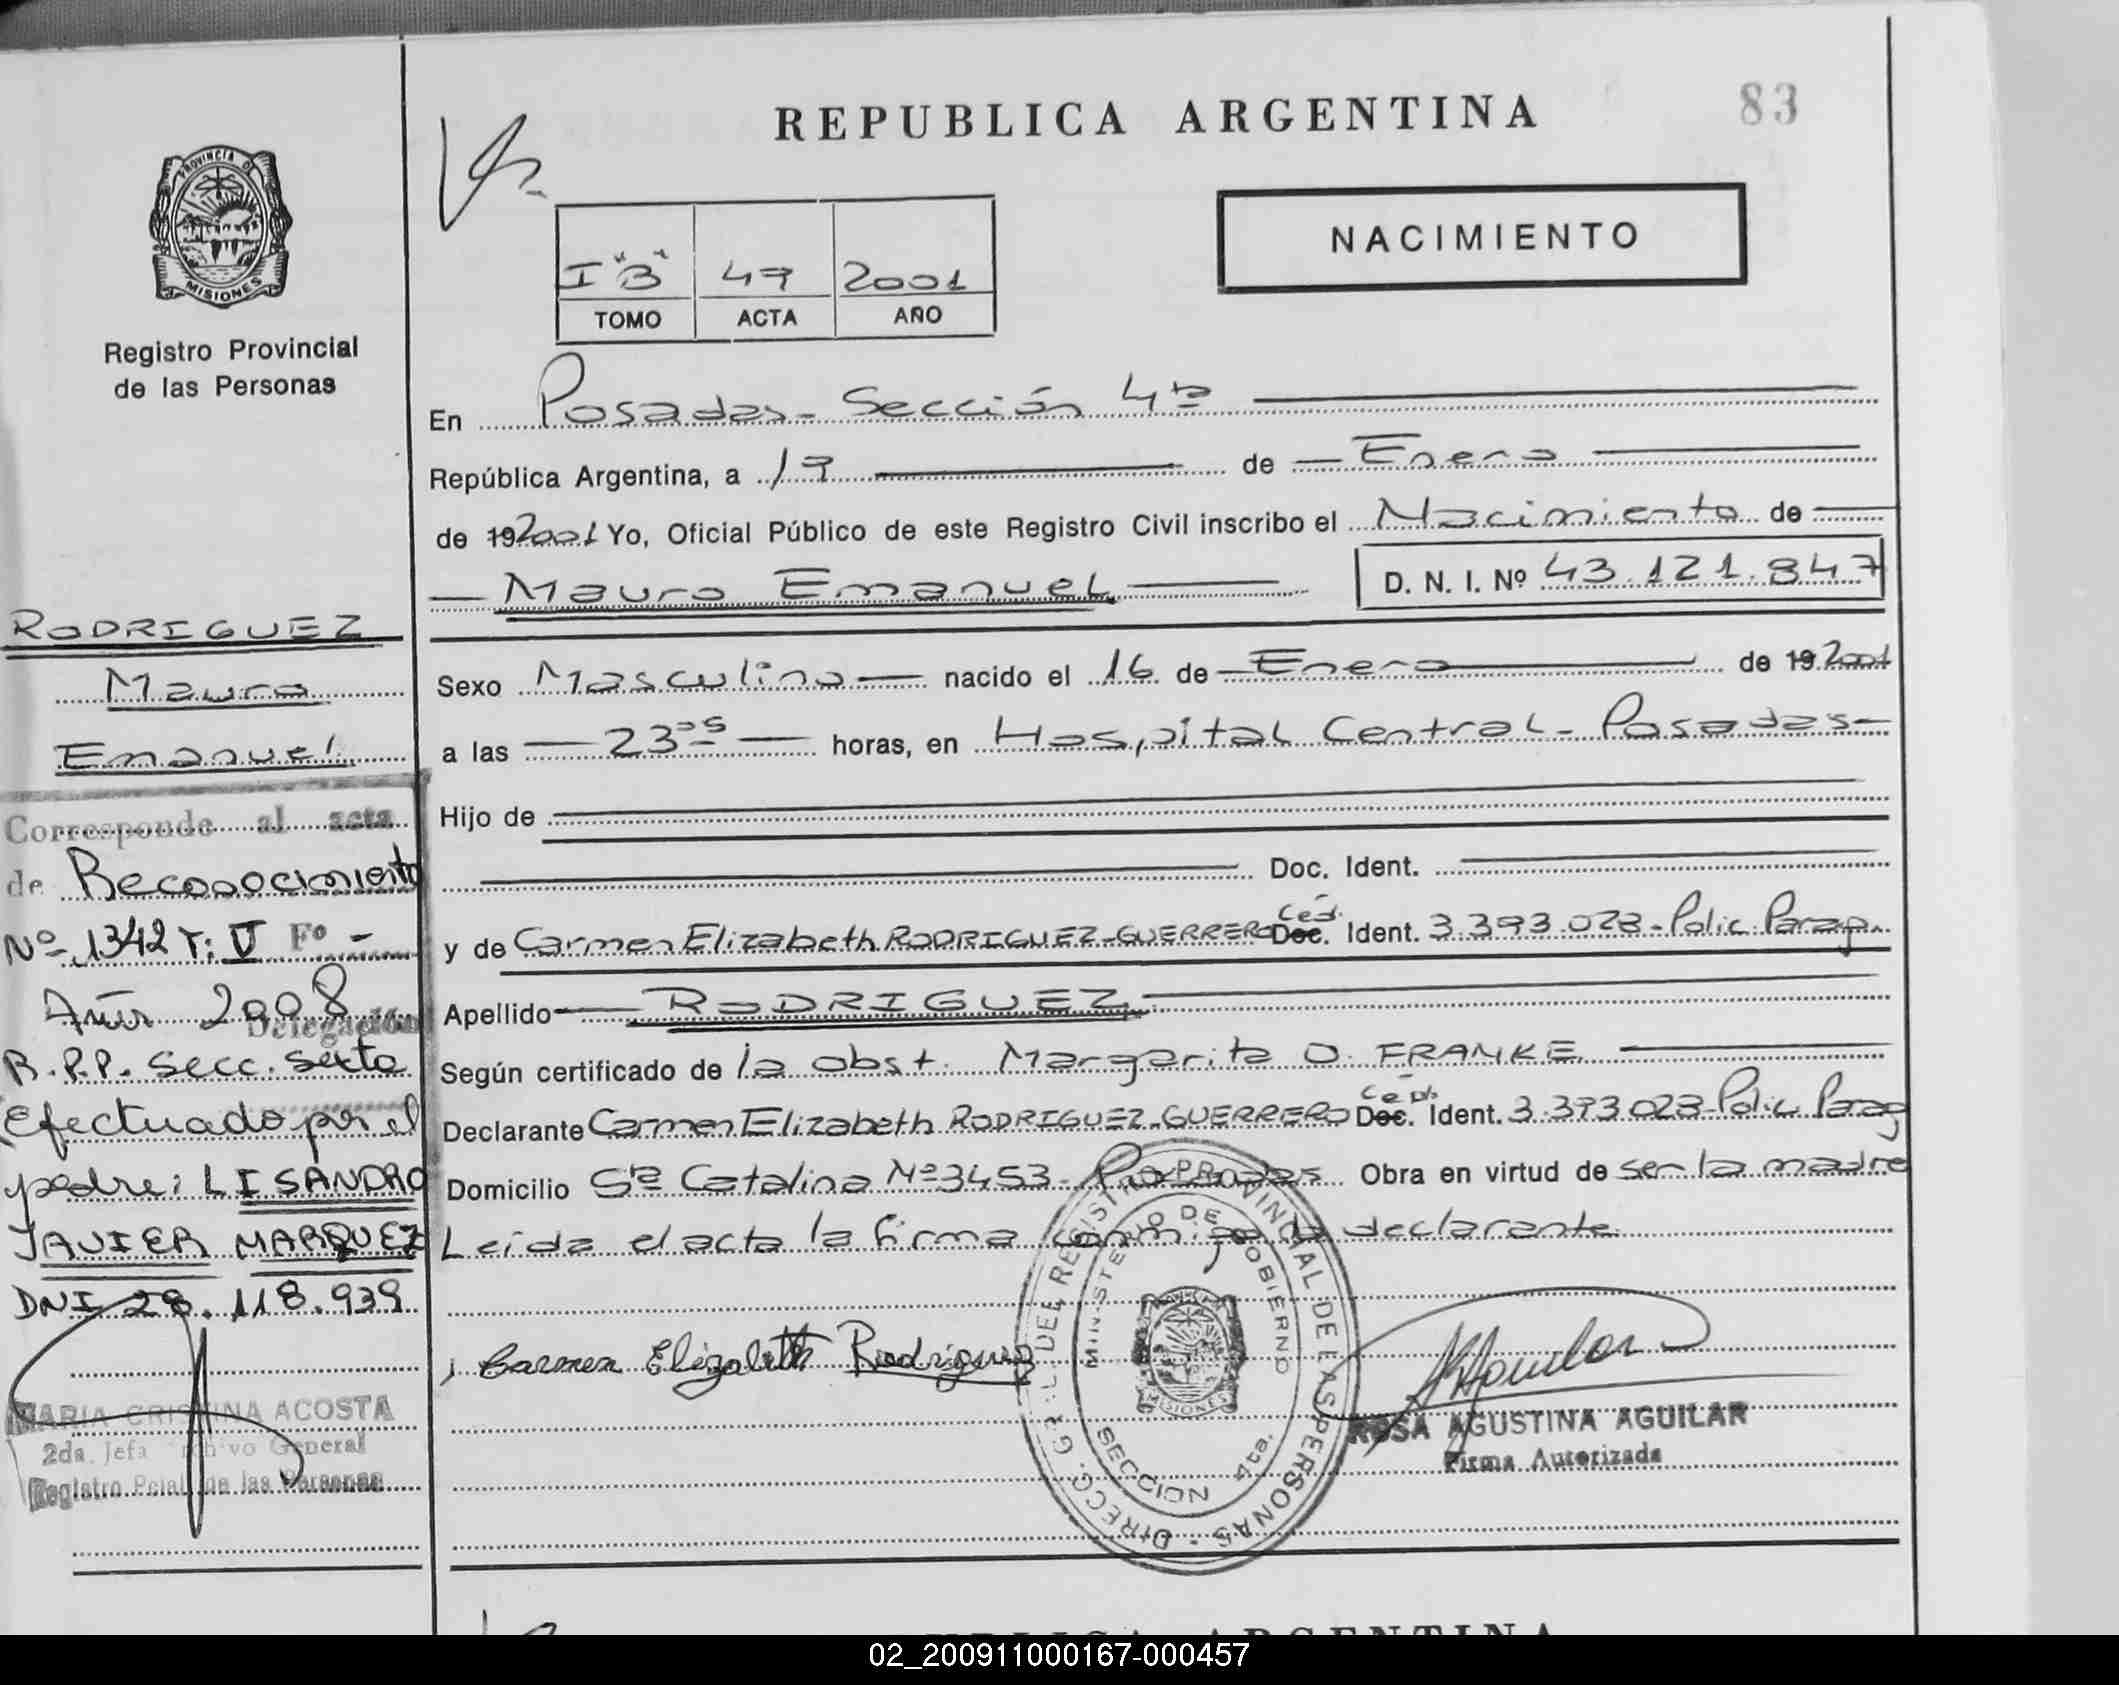 REPUBLICA ARGENTINA
83
PROVINCIA DE
MISIONES
Registro Provincial
de las Personas
NACIMIENTO
I "B" 47 2001
TOMO ACTA AÑO
En Posadas - Sección 4ta
República Argentina, a 17 de Enero
de 19 2001 Yo, Oficial Público de este Registro Civil inscribo el Nacimiento de
Mauro Emanuel D. N. I. Nº 43.121.847
Sexo Masculino nacido el 16 de Enero de 19 2001
a las 23 05 horas, en Hospital Central - Posadas -
Hijo de
Doc. Ident.
y de Carmen Elizabeth RODRIGUEZ-GUERRERO Céd. Doc. Ident. 3.393.023 - Polic Parag.
Apellido RODRIGUEZ
Según certificado de la obst. Margarita O. FRANKE
Declarante Carmen Elizabeth RODRIGUEZ-GUERRERO Céd. Doc. Ident. 3.393.023 - Polic Parag
Domicilio Sta Catalina Nº 3453 - Posadas Obra en virtud de ser la madre
Leída el acta la firma conmigo la declarante
Carmen Elizabeth Rodriguez
DIRECC. GRAL. DEL REGISTRO PROVINCIAL DE LAS PERSONAS
MINISTERIO DE GOBIERNO
MISIONES
SECCION 4ta.
ROSA AGUSTINA AGUILAR
Firma Autorizada
RODRIGUEZ
Mauro
Emanuel
Corresponde al acta
de Reconocimiento
Nº 1342 T: V Fº -
Año 2008
Delegación
R.P.P. Secc. Sexta
Efectuado por el
padre: LISANDRO
JAVIER MARQUEZ
DNI 28.118.939
MARIA CRISTINA ACOSTA
2da. Jefa Archivo General
Registro Pcial. de las Personas
REPUBLICA ARGENTINA
02_200911000167-000457